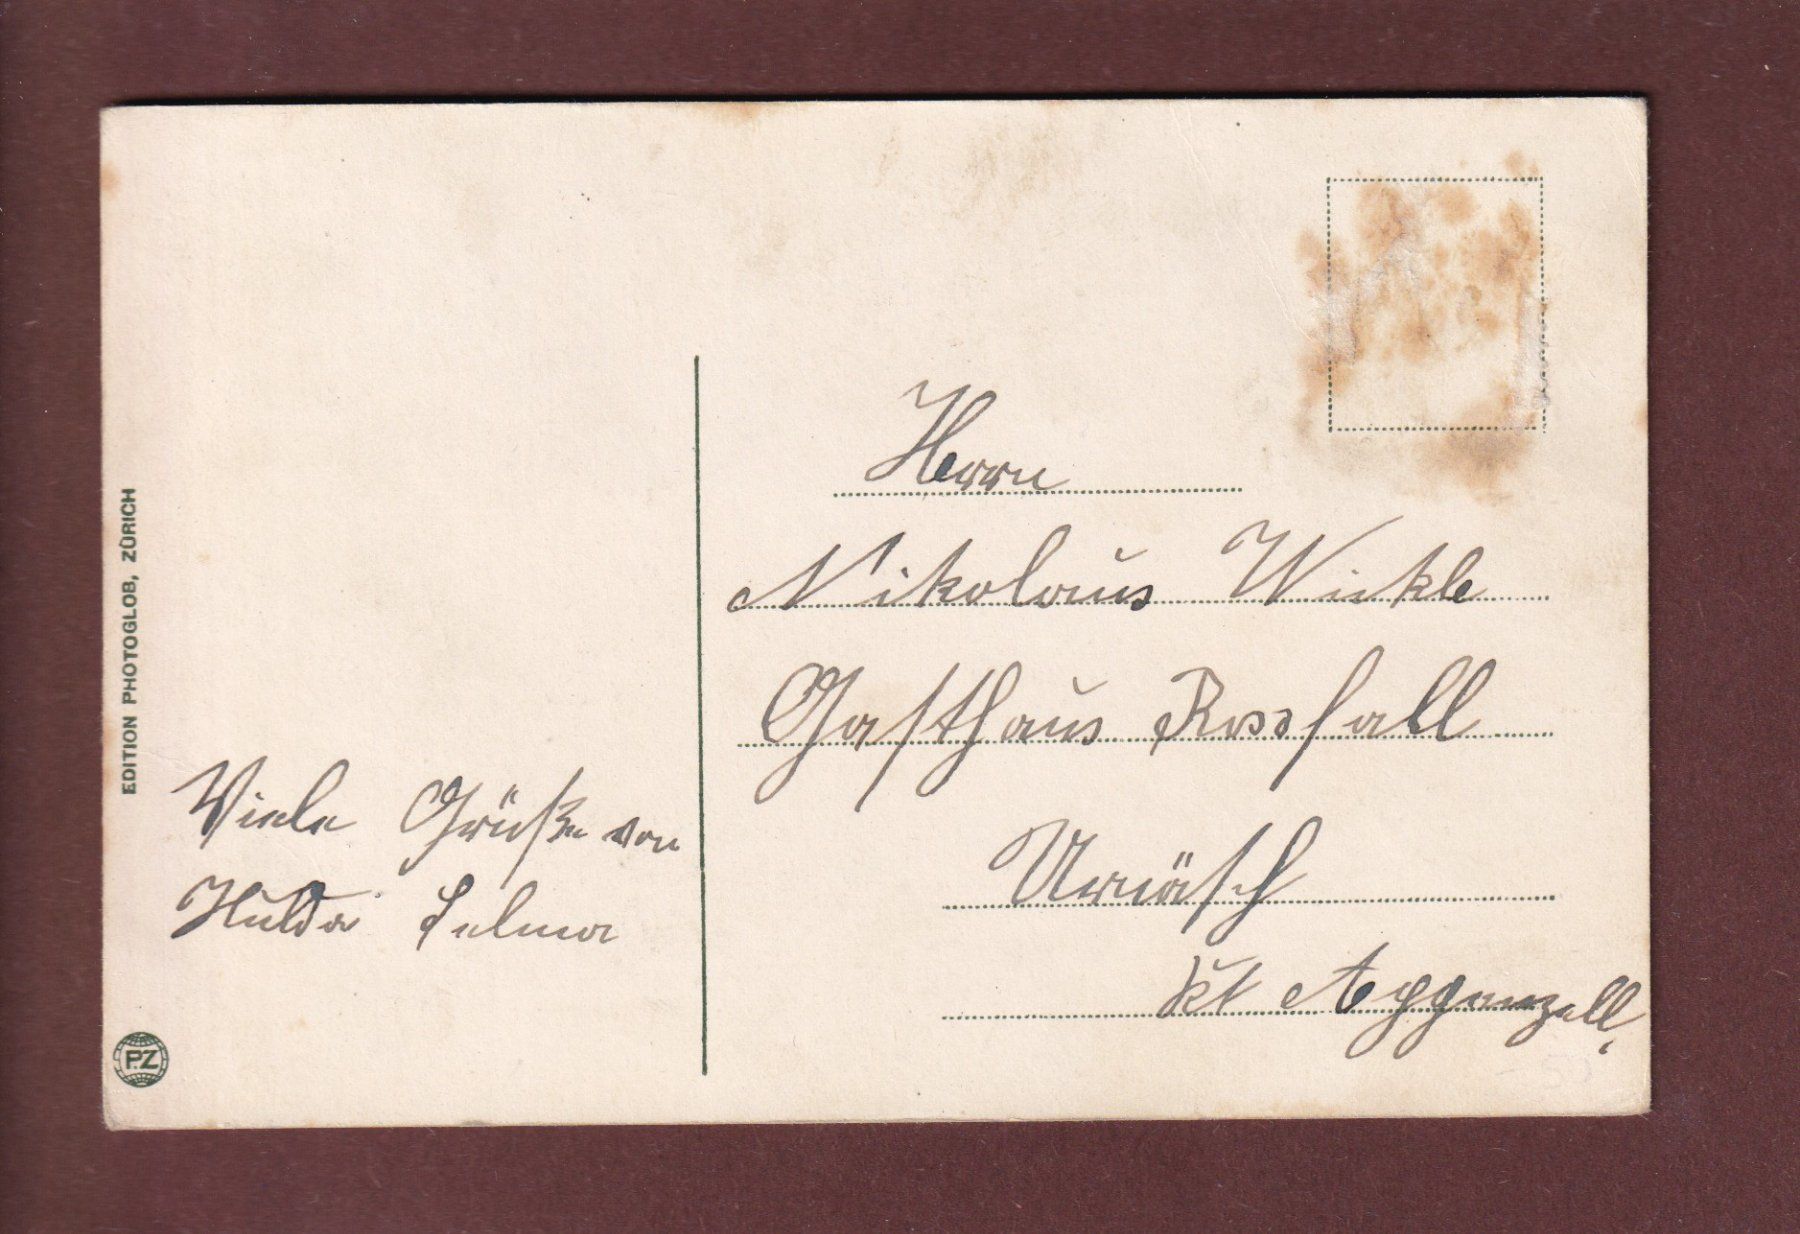 EDITION PHOTOGLOB, ZÜRICH
Viele Grüße von
Hulda Selma
P.Z
Herrn
Nikolaus Wickle
Gasthaus Rossfall
Urnäsch
Kt Appenzell.